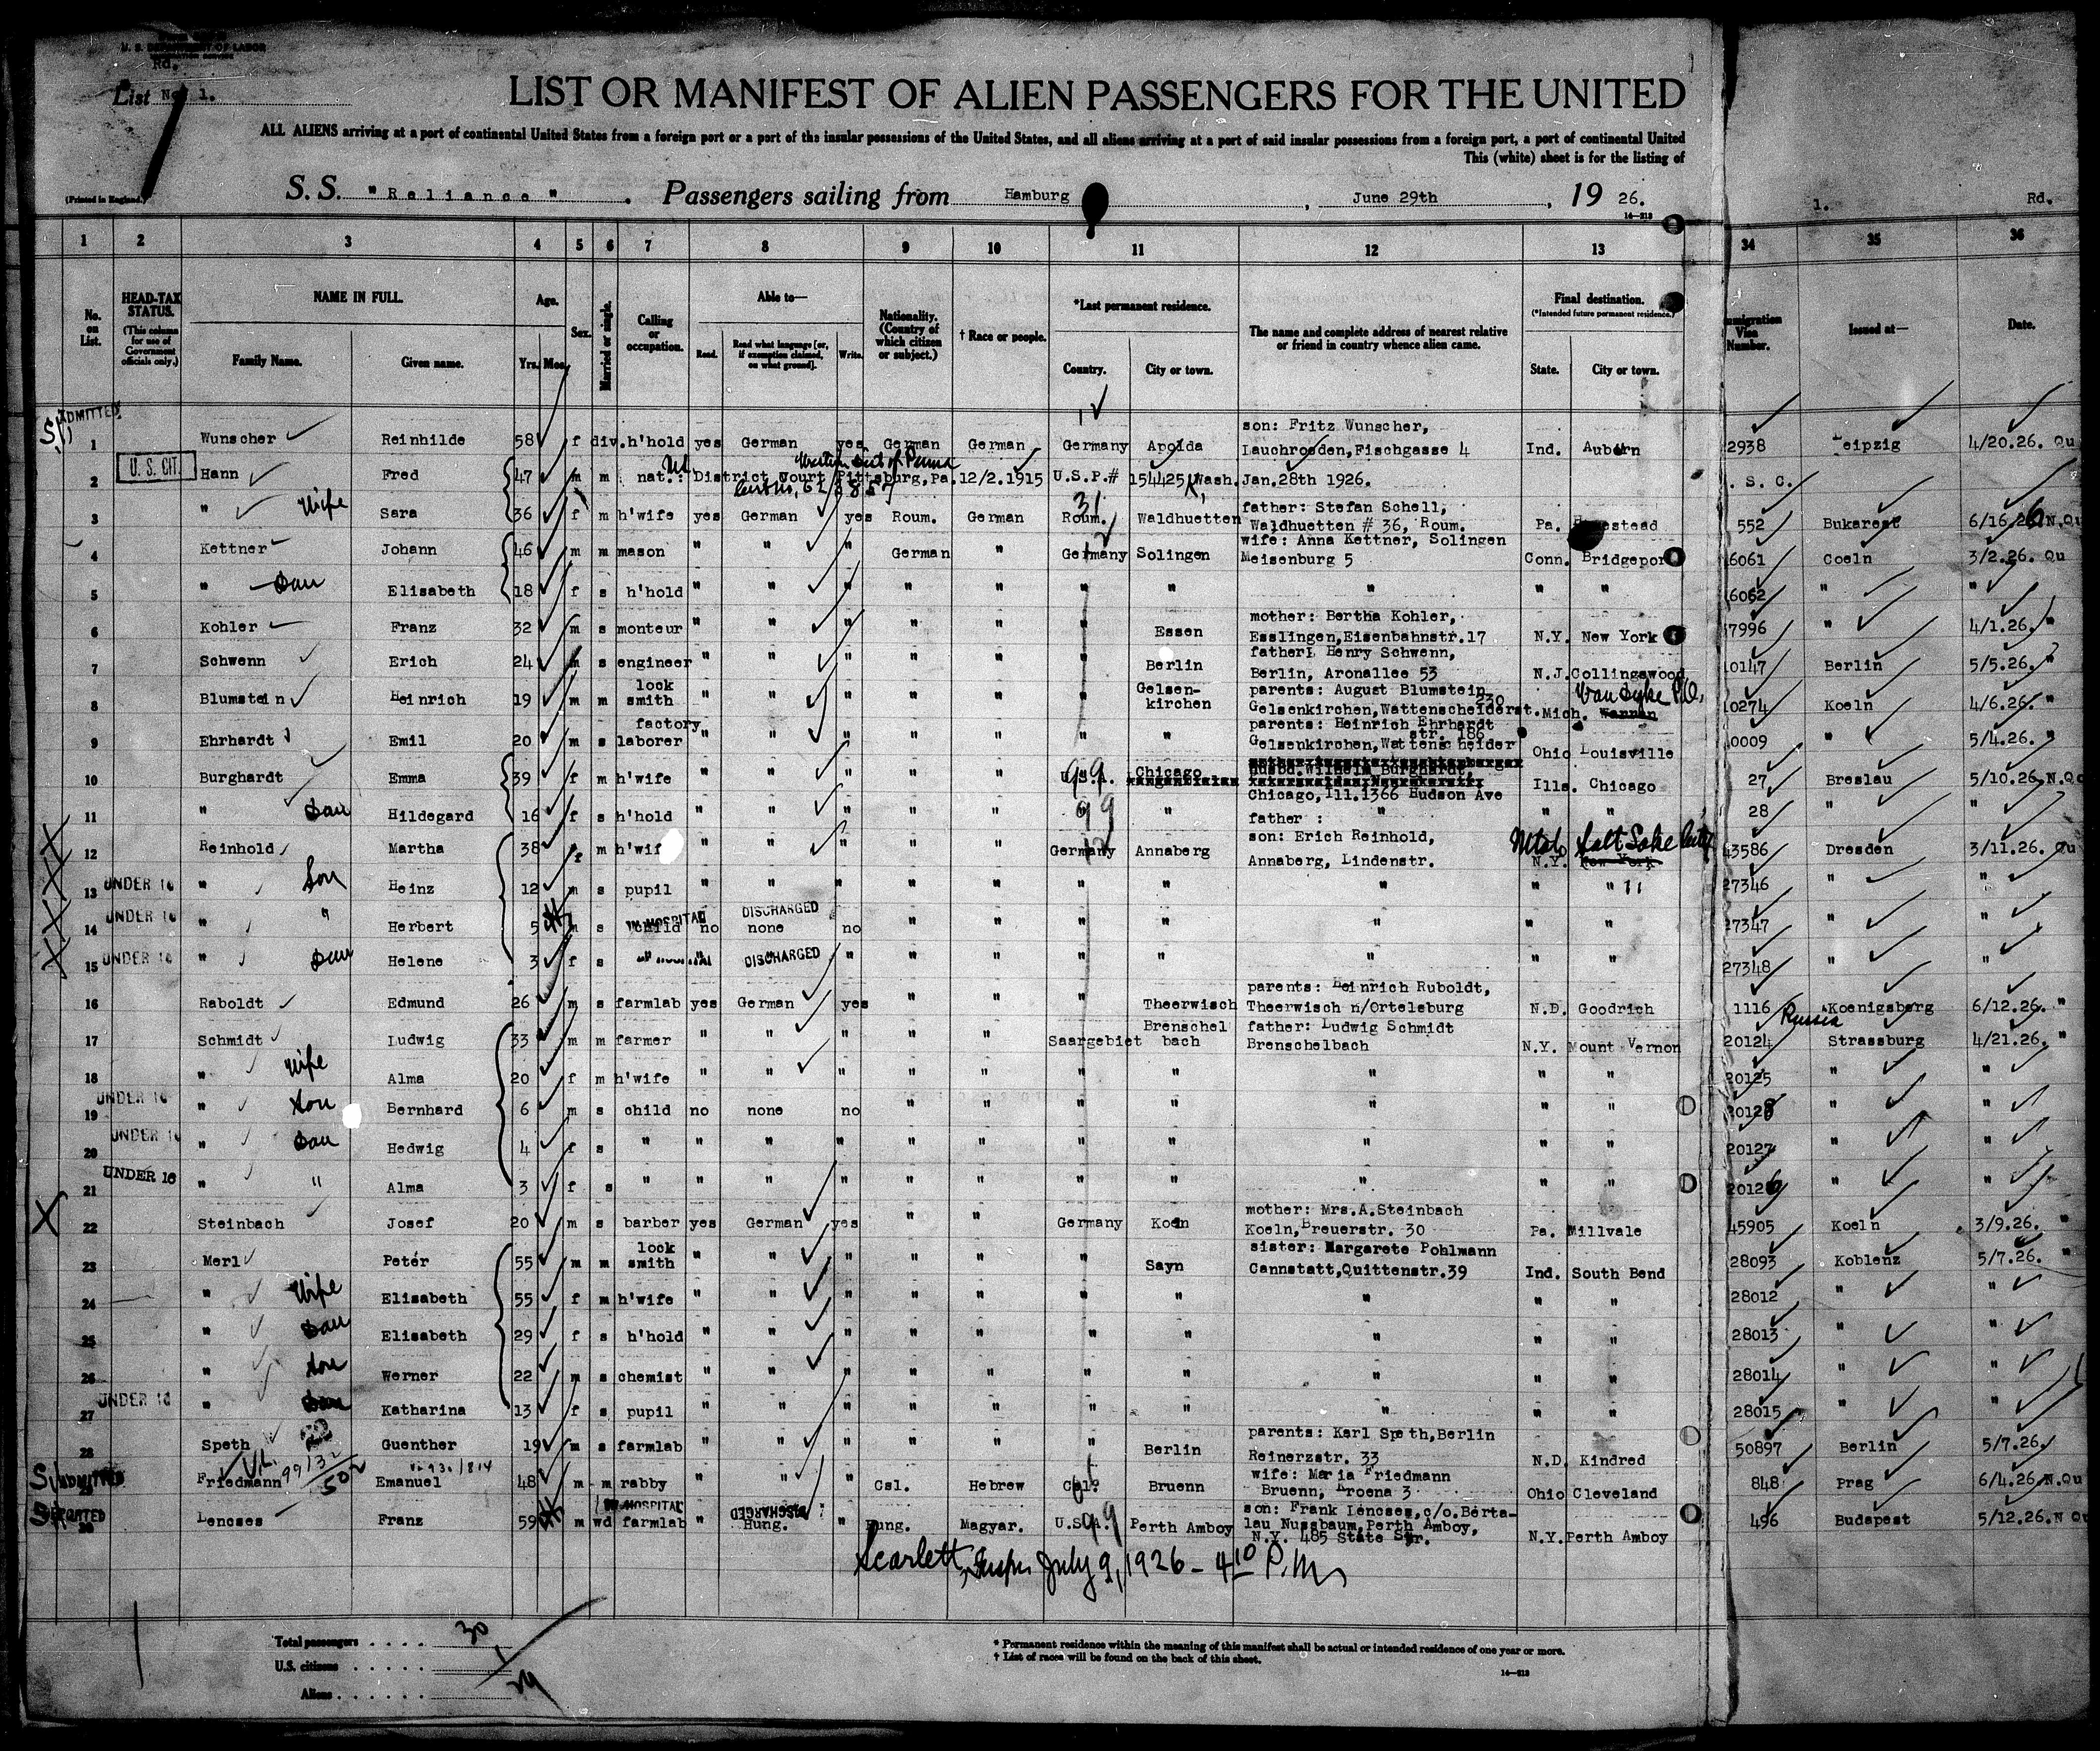 U. S. DEPARTMENT OF LABOR
Rd.
List No. 1.
LIST OR MANIFEST OF ALIEN PASSENGERS FOR THE UNITED
ALL ALIENS arriving at a port of continental United States from a foreign port or a port of the insular possessions of the United States, and all aliens arriving at a port of said insular possessions from a foreign port, a port of continental United
This (white) sheet is for the listing of
(Printed in England.)
S. S. "Reliance" . Passengers sailing from Hamburg , June 29th , 19 26.
14—213
1. Rd.
1 2 3 4 5 6 7 8 9 10 11 12 13 34 35 36
No. on List.
HEAD-TAX STATUS. (This column for use of Government officials only.)
NAME IN FULL. Family Name. Given name.
Age. Yrs. Mos.
Sex.
Married or single.
Calling or occupation.
Able to— Read. Read what language [or, if exemption claimed, on what ground]. Write.
Nationality. (Country of which citizen or subject.)
† Race or people.
*Last permanent residence. Country. City or town.
The name and complete address of nearest relative or friend in country whence alien came.
Final destination. (*Intended future permanent residence.) State. City or town.
Immigration Visa Number.
Issued at—
Date.
ADMITTED
1 Wunscher Reinhilde 58 f div. h'hold yes German yes German German Germany Apolda son: Fritz Wunscher, Lauchroeden, Fischgasse 4 Ind. Auburn 2938 Leipzig 4/20.26. Qu
2 U. S. CIT. Hann Fred 47 m m nat.: District Court Pittsburg, Pa. 12/2.1915 U.S.P.# 154425 Wash. Jan.28th 1926. . S. C.
3 " Wife Sara 36 f m h'wife yes German yes Roum. German Roum. Waldhuetten father: Stefan Schell, Waldhuetten # 36, Roum. Pa. 552 Bukarest 6/16.26 N.Qu
4 Kettner Johann 46 m m mason " " " German " Germany Solingen wife: Anna Kettner, Solingen Meisenburg 5 Conn. Bridgeport 6061 Coeln 3/2.26. Qu
5 " Dau Elisabeth 18 f s h'hold " " " " " " " " " " 6062 " "
6 Kohler Franz 32 m s monteur " " " " " " Essen mother: Bertha Kohler, Esslingen, Eisenbahnstr.17 N.Y. New York 7996 " 4/1.26. "
7 Schwenn Erich 24 m s engineer " " " " " " Berlin father: Henry Schwenn, Berlin, Aronallee 53 N.J. Collingswood 0147 Berlin 5/5.26. "
8 Blumstein Heinrich 19 m m lock smith " " " " " " Gelsenkirchen parents: August Blumstein Gelsenkirchen, Wattenscheiderst. 230 Mich. Van Dyke P.O. 0274 Koeln 4/6.26. "
9 Ehrhardt Emil 20 m s factory laborer " " " " " " " parents: Heinrich Ehrhardt Gelsenkirchen, Wattenscheider str. 186 Ohio Louisville 0009 " 5/4.26. "
10 Burghardt Emma 39 f m h'wife " " " " " U.S.A. Chicago Husbd. Wilhelm Burghardt, Chicago, Ill. 1366 Hudson Ave Ills. Chicago 27 Breslau 5/10.26 N.Qu
11 " Dau Hildegard 16 f s h'hold " " " " " " father : " " 28 " "
12 Reinhold Martha 38 f m h'wif " " " " " Germany Annaberg son: Erich Reinhold, Annaberg, Lindenstr. N.Y. Utah Salt Lake City 43586 Dresden 3/11.26. Qu
13 UNDER 16 " Son Heinz 12 m s pupil " " " " " " " " " " 27346 " "
14 UNDER 16 " " Herbert 5 m s child IN HOSPITAL DISCHARGED no none no " " " " " " " 27347 " "
15 UNDER 16 " Dau Helene 3 f s " IN HOSPITAL DISCHARGED " " " " " " " " 27348 " "
16 Raboldt Edmund 26 m s farmlab yes German yes " " " Theerwisch parents: Heinrich Ruboldt, Theerwisch n/Ortelsburg N.D. Goodrich 1116 Koenigsberg 6/12.26. "
Russia
17 Schmidt Ludwig 33 m m farmer " " " " " Saargebiet Brenschelbach father: Ludwig Schmidt Brenschelbach N.Y. Mount Vernon 20124 Strassburg 4/21.26. "
18 " Wife Alma 20 f m h'wife " " " " " " " " " " 20125 " "
19 UNDER 16 " Son Bernhard 6 m s child no none no " " " " " " " 20128 " "
20 UNDER 16 " Dau Hedwig 4 f s " " " " " " " " " " " 20127 " "
21 UNDER 16 " " Alma 3 f s " " " " " " " " " " " 20126 " "
22 Steinbach Josef 20 m s barber yes German yes " " Germany Koeln mother: Mrs.A.Steinbach Koeln, Breuerstr. 30 Pa. Millvale 45905 Koeln 3/9.26. "
23 Merl Peter 55 m m lock smith " " " " " " Sayn sister: Margarete Pohlmann Cannstatt, Quittenstr.39 Ind. South Bend 28093 Koblenz 5/7.26. "
24 " Wife Elisabeth 55 f m h'wife " " " " " " " " " " 28012 " "
25 " Dau Elisabeth 29 f s h'hold " " " " " " " " " " 28013 " "
26 " Son Werner 22 m s chemist " " " " " " " " " " 28014 " "
27 UNDER 16 " Dau Katharina 13 f s pupil " " " " " " " " " " 28015 " "
28 Speth Guenther 19 m s farmlab " " " " " " Berlin parents: Karl Speth, Berlin Reinerzstr. 33 N.D. Kindred 50897 Berlin 5/7.26.
ADMITTED Friedmann 99132/502 Emanuel 48 m m rabby " " " Csl. Hebrew Csl. Bruenn wife: Maria Friedmann Bruenn, Kroena 3 Ohio Cleveland 848 Prag 6/4.26. N.Qu
DEPORTED 30 Lencses Franz 59 m wd farmlab IN HOSPITAL DISCHARGED " Hung. " Hung. Magyar. U.S.A. Perth Amboy son: Frank Lencses, c/o. Bertalau Nussbaum, Perth Amboy, N.Y. 485 State Str. N.Y. Perth Amboy 496 Budapest 5/12.26. N Qu
Scarlett, Insp. July 9, 1926 - 4 10 P.M.
Total passengers . . . . 30
U.S. citizens . . . . . 1
Aliens . . . . . . 29
* Permanent residence within the meaning of this manifest shall be actual or intended residence of one year or more.
† List of races will be found on the back of this sheet.
14—213